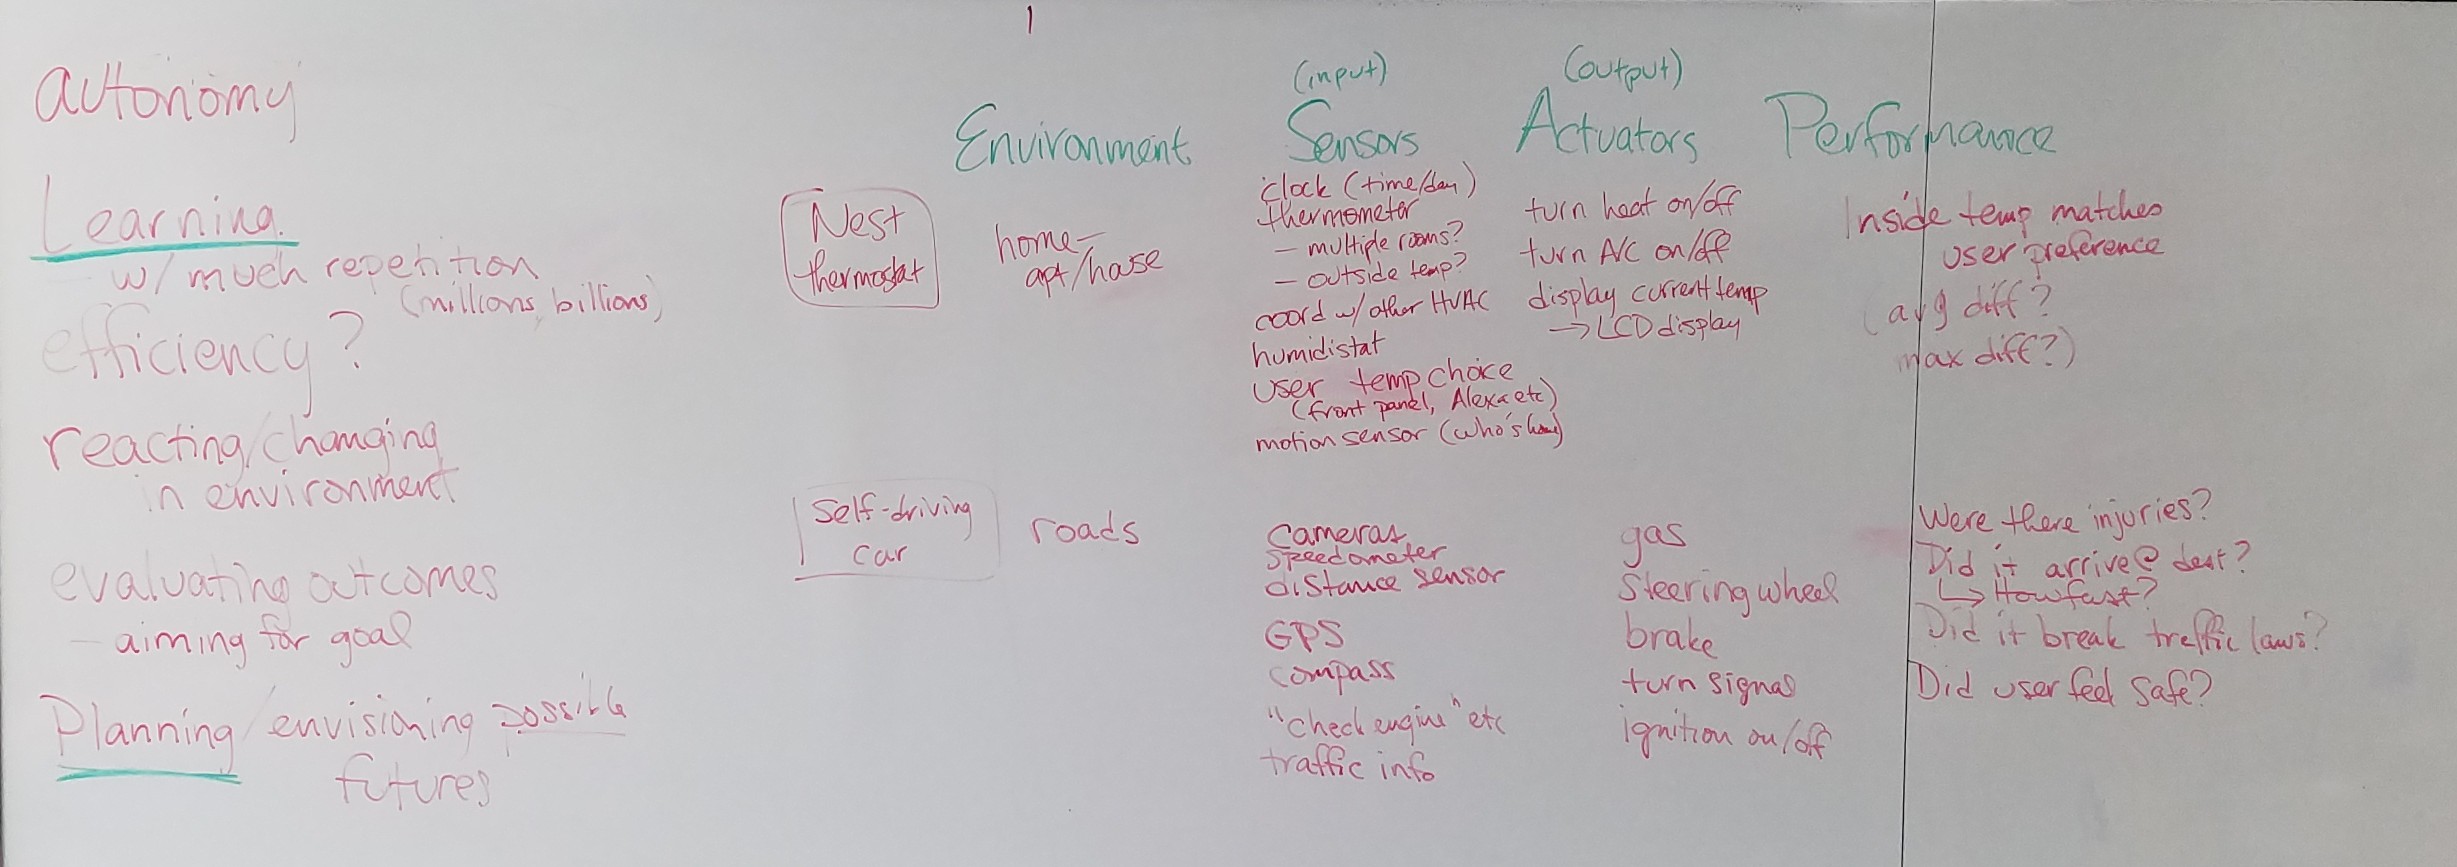 autonomy
Learning
w/ much repetition
(millions, billions)
efficiency?
reacting/changing
in environment
evaluating outcomes
- aiming for goal
Planning/envisioning possible
futures
(input)
(output)
Environment
Sensors
Actuators
Performance
Nest
thermostat
home-
apt/house
clock (time/day)
thermometer
- multiple rooms?
- outside temp?
coord w/ other HVAC
humidistat
user temp choice
(front panel, Alexa etc)
motion sensor (who's home)
turn heat on/off
turn A/C on/off
display current temp
→ LCD display
Inside temp matches
user preference
(avg diff?
max diff?)
Self-driving
car
roads
cameras
speedometer
distance sensor
GPS
compass
"check engine" etc
traffic info
gas
steering wheel
brake
turn signal
ignition on/off
Were there injuries?
Did it arrive @ dest?
↳ How fast?
Did it break traffic laws?
Did user feel safe?